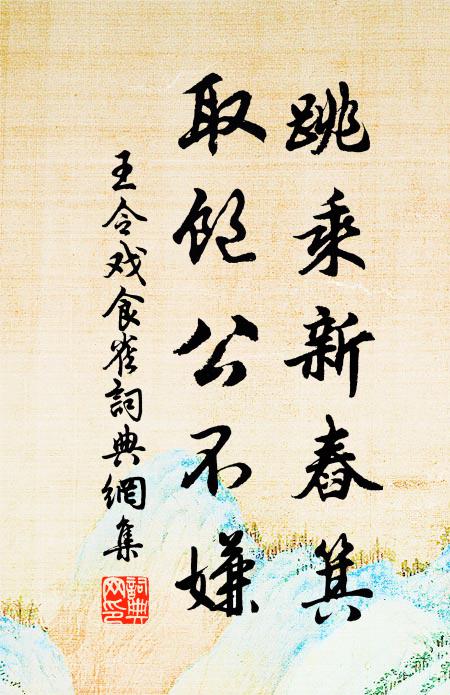 跳乘新舂箕
取饱公不嫌
王令戏食雀詞典網集
詞典网印